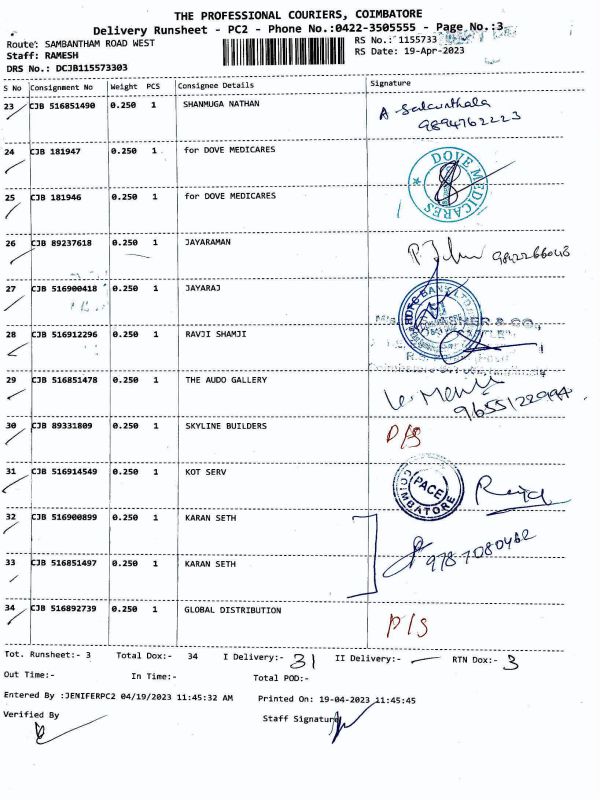 THE PROFESSIONAL COURIERS, COIMBATORE
Delivery Runsheet - PC2 - Phone No.:0422-3505555 - Page No.:3
Route: SAMBANTHAM ROAD WEST
RS No.: 1155733
Staff: RAMESH
RS Date: 19-Apr-2023
DRS No.: DCJB115573303
S No Consignment No Weight PCS Consignee Details Signature
23 CJB 516851490 0.250 1 SHANMUGA NATHAN
9894762223
24 CJB 181947 0.250 1 for DOVE MEDICARES
DOVE MEDICARES
25 CJB 181946 0.250 1 for DOVE MEDICARES
26 CJB 89237618 0.250 1 JAYARAMAN
27 CJB 516900418 0.250 1 JAYARAJ
HDFC BANK LTD
28 CJB 516912296 0.250 1 RAVJI SHAMJI
29 CJB 516851478 0.250 1 THE AUDO GALLERY
30 CJB 89331809 0.250 1 SKYLINE BUILDERS
D/S
31 CJB 516914549 0.250 1 KOT SERV
PACE
COIMBATORE
32 CJB 516900899 0.250 1 KARAN SETH
9787080462
33 CJB 516851497 0.250 1 KARAN SETH
34 CJB 516892739 0.250 1 GLOBAL DISTRIBUTION
D/S
Tot. Runsheet:- 3 Total Dox:- 34 I Delivery:- 31 II Delivery:- — RTN Dox:- 3
Out Time:- In Time:- Total POD:-
Entered By :JENIFERPC2 04/19/2023 11:45:32 AM Printed On: 19-04-2023 11:45:45
Verified By Staff Signature